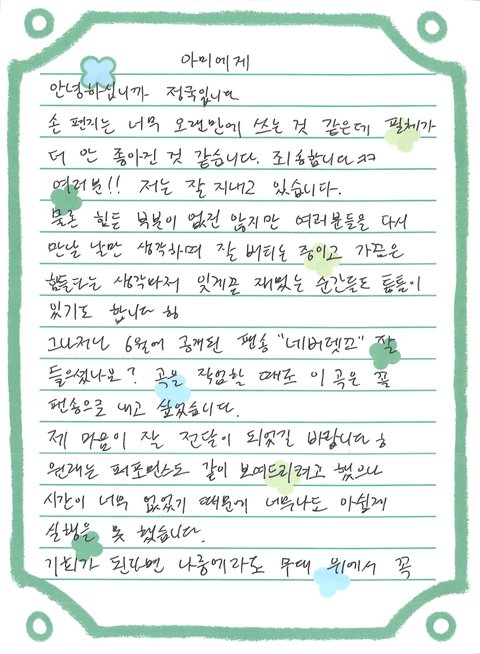 아미에게
안녕하십니까 정국입니다
손 편지는 너무 오랜만에 쓰는 것 같은데 필체가
더 안 좋아진 것 같습니다. 죄송합니다ㅋㅋ
여러분!! 저는 잘 지내고 있습니다.
물론 힘든 부분이 없진 않지만 여러분들을 다시
만날 날만 생각하며 잘 버티는 중이고 가끔은
힘들다는 생각마저 잊게끔 재밌는 순간들도 틈틈이
있기도 합니다 ㅎ
그나저나 6월에 공개된 팬송 "네버렛고" 잘
들으셨나요? 곡을 작업할 때도 이 곡은 꼭
팬송으로 내고 싶었습니다.
제 마음이 잘 전달이 되었길 바랍니다 ㅎ
원래는 퍼포먼스도 같이 보여드리려고 했으나
시간이 너무 없었기 때문에 너무나도 아쉽게
실행을 못 했습니다.
기회가 된다면 나중에라도 무대 위에서 꼭